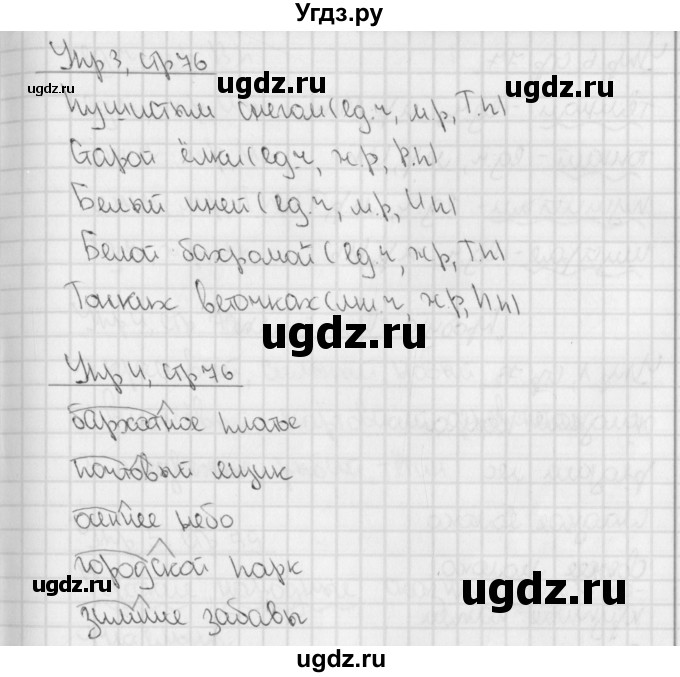 Угдз.ру
Упр 3, стр 76
ugdz.ru
ugdz.ru
ugdz.ru
пушистым снегом (ед.ч, м.р, Т.п)
Старой ёлки (ед.ч, ж.р, Р.п)
Белый иней (ед.ч, м.р, И п)
ugdz.ru
ugdz.ru
Белой бахромой (ед.ч, ж.р, Т.п)
Тонких веточках (мн.ч, ж.р, И п)
ugdz.ru
ugdz.ru
Упр 4, стр 76
бархатное платье
почтовый ящик
осеннее небо
городской парк
ugdz.ru
ugdz.ru
зимние забавы
ugdz.ru